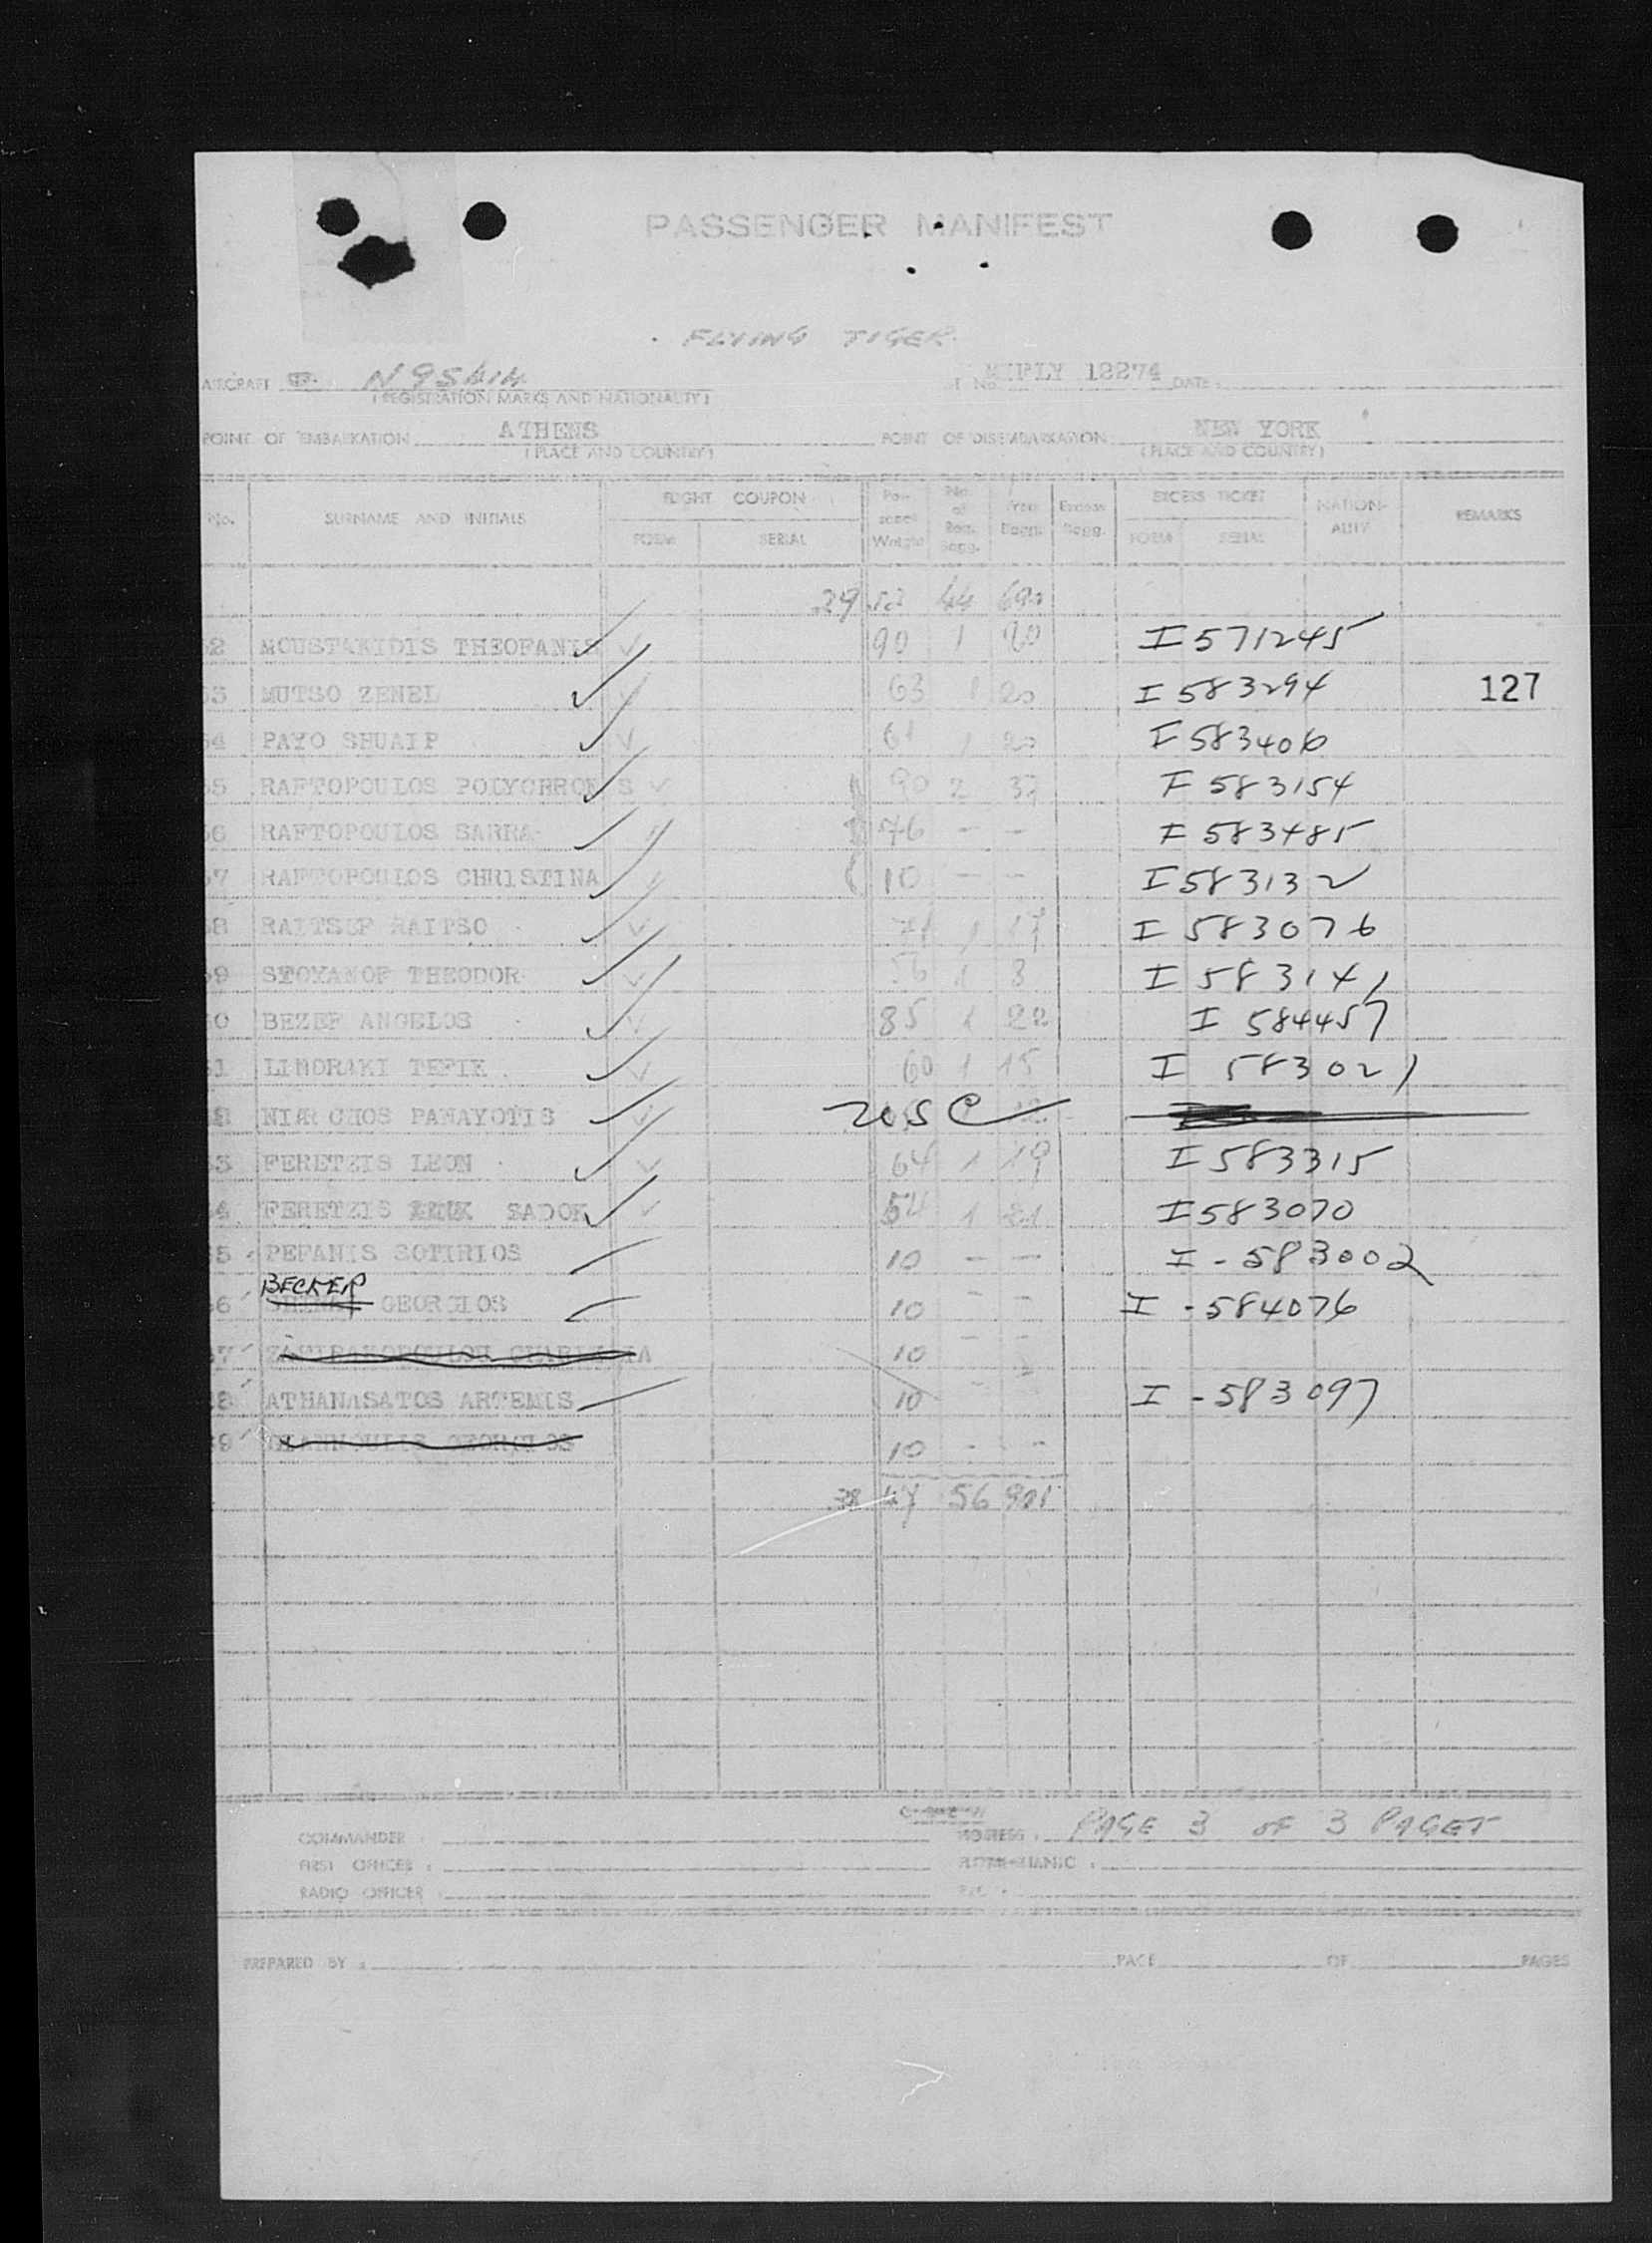 PASSENGER MANIFEST
FLYING TIGER
AIRCRAFT
12274 DATE:
(REGISTRATION MARKS AND NATIONALITY)
POINT OF EMBARKATION ATHENS POINT OF DISEMBARKATION NEW YORK
(PLACE AND COUNTRY) (PLACE AND COUNTRY)
No. SURNAME AND INITIALS FLIGHT COUPON FORM SERIAL Weight No. of Bagg. Free Bagg. Excess Bagg. EXCESS TICKET FORM SERIAL NATION-ALITY REMARKS
29 44
2 MOUSTAKIDIS THEOFANIS 90 1 I 571245
3 MUTSO ZENEL 63 1 20 I 583294 127
4 PAYO SHUAIP 61 1 20 I 583406
5 RAFTOPOULOS POLYCHRON S 90 2 37 I 583154
6 RAFTOPOULOS SARRA 76 - - I 583485
7 RAFTOPOULOS CHRISTINA 10 - - I 583132
8 RAITSEF RAIPSO 1 17 I 583076
9 STOYANOF THEODOR 56 1 8 I 583141
0 BEZEF ANGELOS 85 1 22 I 584457
1 LIMORAKI TEFIK 60 1 15 I 583021
NIARCHOS PANAYOTIS USC
3 FERETZIS LEON 64 1 19 I 583315
4 FERETZIS SADOK 54 1 21 I 583070
5 PEPANIS SOTIRIOS 10 - - I - 583002
BECKER
6 GEORGIOS 10 - - I - 584076
7 10 - -
8 ATHANASATOS ARTEMIS 10 - I - 583097
9 10 - -
38 47 56 901
COMMANDER : HOSTESS : PAGE 3 OF 3 PAGES
FIRST OFFICER :
RADIO OFFICER :
PREPARED BY : PAGE OF PAGES